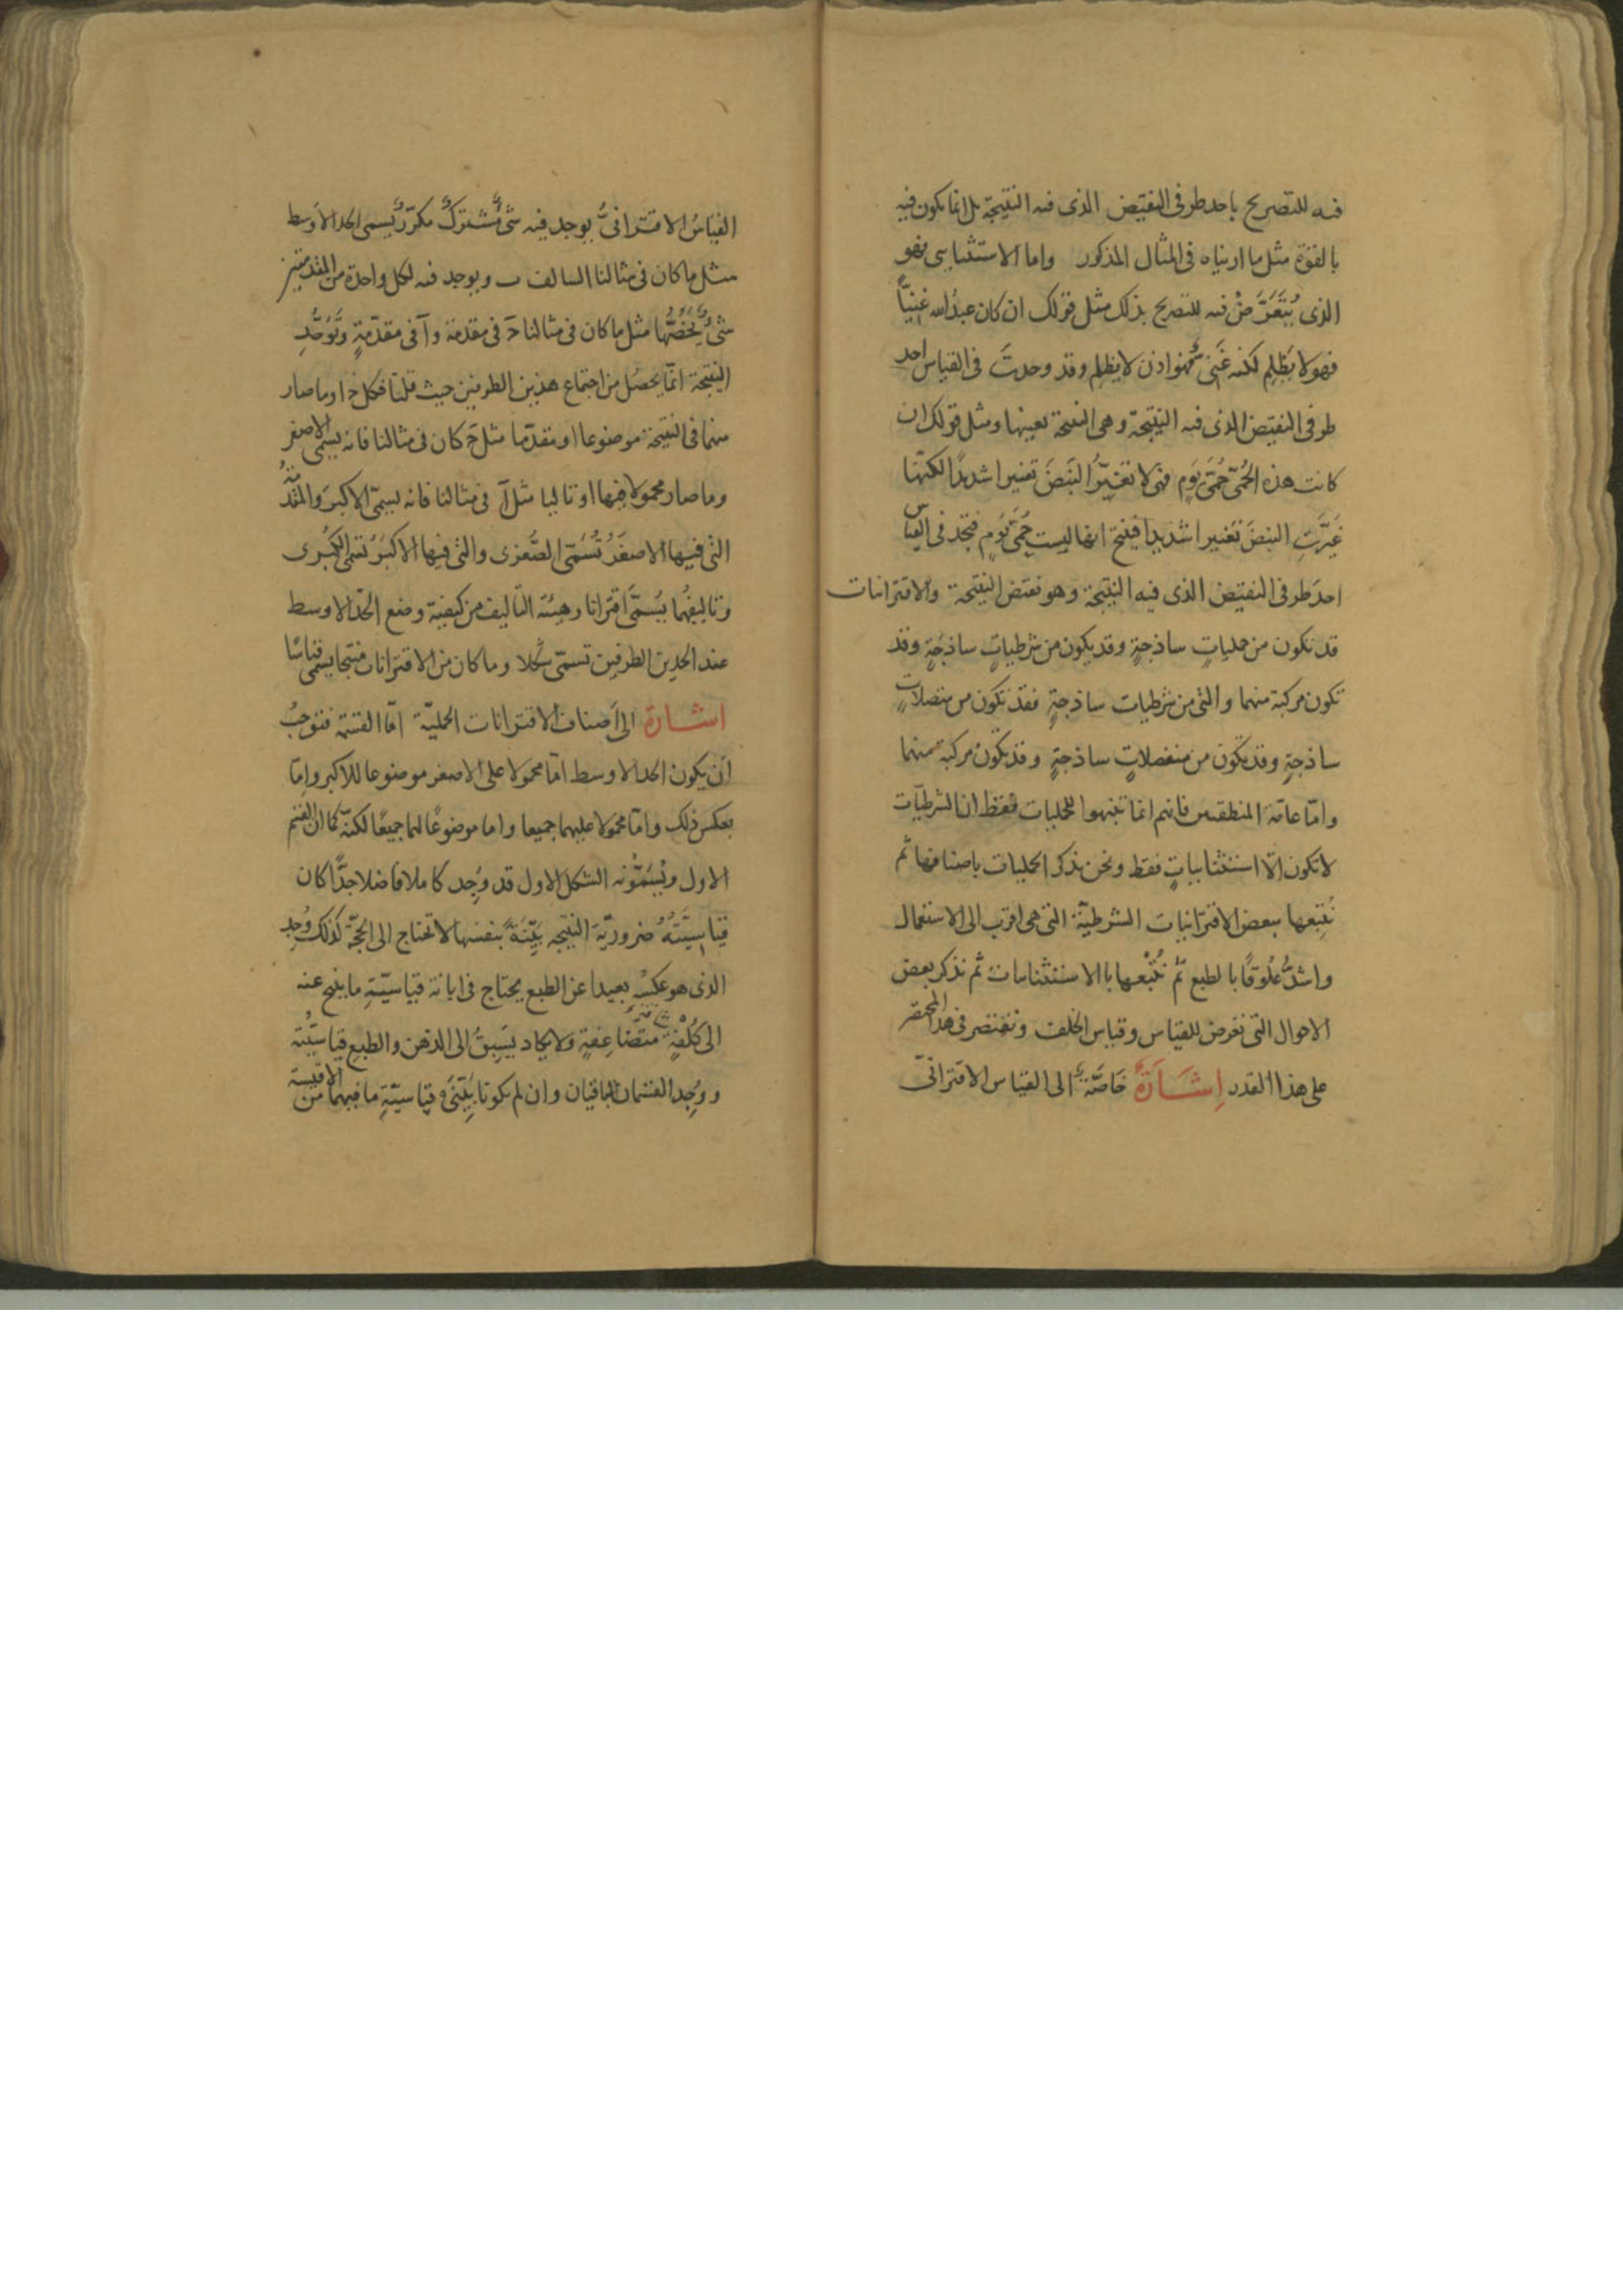 فيه للتصريح باحد طرفى النقيض الذى فيه النتيجة بل انما يكون فيه
بالقوة مثل ما اريناه فى المثال المذكور واما الاستثنايى فهو
الذى يُتَعَرَّضُ فيه للتصريح بذلك مثل قولك ان كان عبدُ الله غنِيّاً
فهو لا يَظلِم لكنه غَنِىٌّ فهو اذن لا يظلم وقد وجدتَ فى القياس احد
طرفى النقيض الذى فيه النتيجة وهى النتيجة بعينها ومثل قولك ان
كانت هذه الحُمّى حُمَّى يَوم فهى لا تغيّرُ النَبضَ تغييرا شديدًا لكنّها
غَيَّرَتِ النبضَ تغييرا شديدا فينتج انها ليست حُمَّى يَومٍ فتجد فى القياس
احدَ طرفى النقيض الذى فيه النتيجة وهو نقيض النتيجة والاقترانيات
قد تكون من حمليات ساذجةٍ وقد يكون من شرطياتٍ ساذجةٍ وقد
تكون مركبة منهما والتى من شرطيات ساذجةٍ فقد تكون من متصلاتٍ
ساذجةٍ وقد تكون من منفصلاتٍ ساذجةٍ وقد تكون مركبة منهما
وامّا عامّة المنطقيين فانهم انما تنبهوا للحمليات فقط ان الشرطيّات
لا تكون الّا استثنائياتٍ فقط ونحن نذكر الحمليات باصنافها ثم
نُتبِعها ببعض الاقترانيات الشرطيّة التى هى اقرب الى الاستعمال
واشدُّ عُلُوقًا بالطبع ثمّ نُتْبُعها بالاستثنائيات ثم نذكر بعض
الاحوال التى تعرض للقياس وقياس الخلف ونقتصر فى هذا المختصر
على هذا القدر اِشَارَةٌ خَاصَّةٌ الى القياس الاقترانىّ
القياسُ الاقترانىُّ يوجد فيه شىءٌ مُشترَكٌ مكرّرٌ يسمى الحد الاوسط
مثل ما كان فى مثالنا السالف ب ويوجد فيه لكل واحدة من المقدمتين
شىءٌ يَخُصُّها مثل ما كان فى مثالنا ج فى مقدمة وآ فى مقدّمةٍ وتُوجَدُ
النتيجة انمّا يحصُل من اجتماع هذين الطرفين حيث قلنا فكل ج ا وما صار
منهما فى النتيجة موضوعا او مقدّما مثل جَ كان فى مثالنا فانه يسمى الاصغر
وما صار محمولا فيها او تاليا مثل آ فى مثالنا فانه يسمّى الاكبرَ والمقدّمةُ
التى فيها الاصغَرُ تُسَمّى الصُّغرَى والتى فيها الاكبَرُ تسمى الكُبرى
وتاليفُهما يُسمّى اقترانا وهيئة التاليف من كيفية وضع الحدّ الاوسط
عند الحدين الطرفين تسمّى شكلا وما كان من الاقترانات منتجا يسمى قياسًا
اشارة الى اَصناف الاقترانات الحمليّة امّا القسمة فتوجبُ
اَن يكون الحد الاوسط امّا محمولا على الاصغر موضوعا للاكبر واِمّا
بعكس ذلك وامّا محمولا عليهما جميعا واما موضوعًا لهما جميعًا لكنّه كما ان القسم
الاول ويُسَمّونه الشكل الاول قد وُجِد كاملا فاضلا جدًّا كان
قياسيَّتهُ ضروريّة النتيجه بَيِّنَةً بنفسها لا تحتاج الى الحجّة كذلك وُجِد
الذى هو عكسُه بعيدا عن الطبع يحتاج فى ابانة قياسيّةِ ما ينتج عنه
الى كُلْفَةٍ متضَاعِفةٍ ولا يكاد يَسبِقُ الى الذهن والطبع قياسيّتُه
ووُجِد القسمان الباقيان وان لم يكونا بَيِّنَى قياسيّةِ ما فيهما من الاقيسة